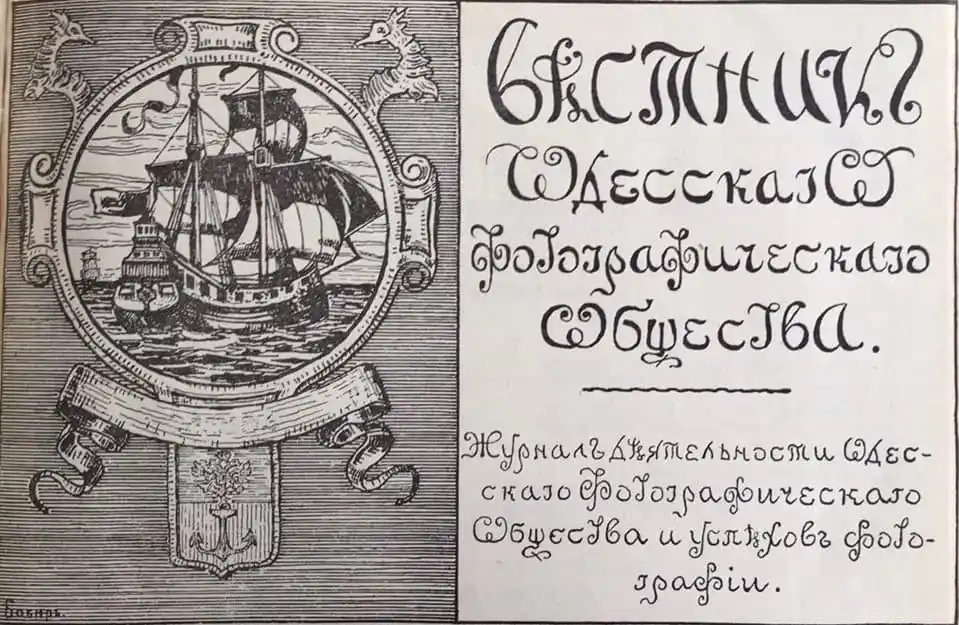 Вѣстникъ
Одесскаго
Фотографическаго
Общества.
Журналъ дѣятельности Одес-
скаго Фотографическаго
Общества и успѣховъ фото-
графіи.